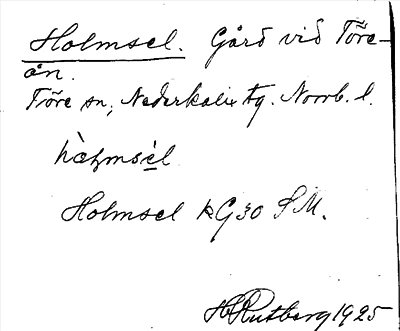 Holmsel. Gård vid Töre-
ån.
Töre sn, Nederkalix tg. Norrb. l.
Holmsel kG30 S M.
H Rutberg 1925